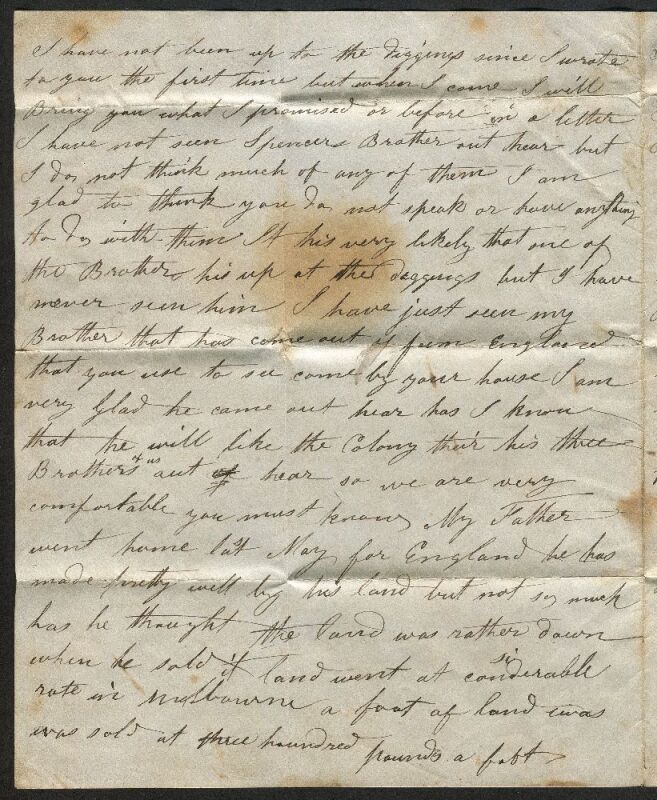 I have not been up to the diggings since I wrote
to you the first time but when I come I will
Bring you what I promised or before in a letter
I have not seen Spencers Brother out hear but
I do not think much of any of them I am
glad to think you do not speak or have anything
to do with them It his very likely that one of
the Brothers his up at the daggings but I have
never seen him I have just seen my
Brother that has come out from England
that you use to see come by your house I am
very Glad he came out hear has I know
that he will like the Colony their his three
Brothers of us out hear so we are very
comfortable you must know My Father
went home last May for England he has
made pretty well by his land but not so much
has he thought the land was rather down
when he sold it land went at considerable
rate in Melbourne a foot of land was
was sold at three houndred pounds a foot